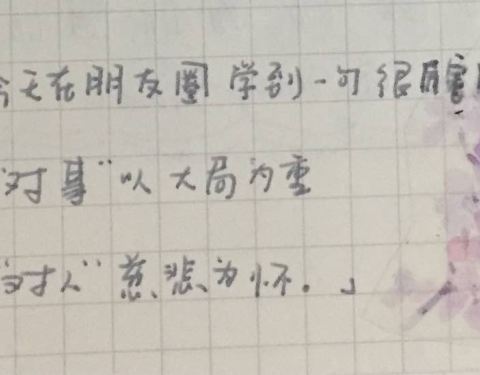 今天在朋友圈学到一句很厉害
"对事"以大局为重
"对人"慈悲为怀。」